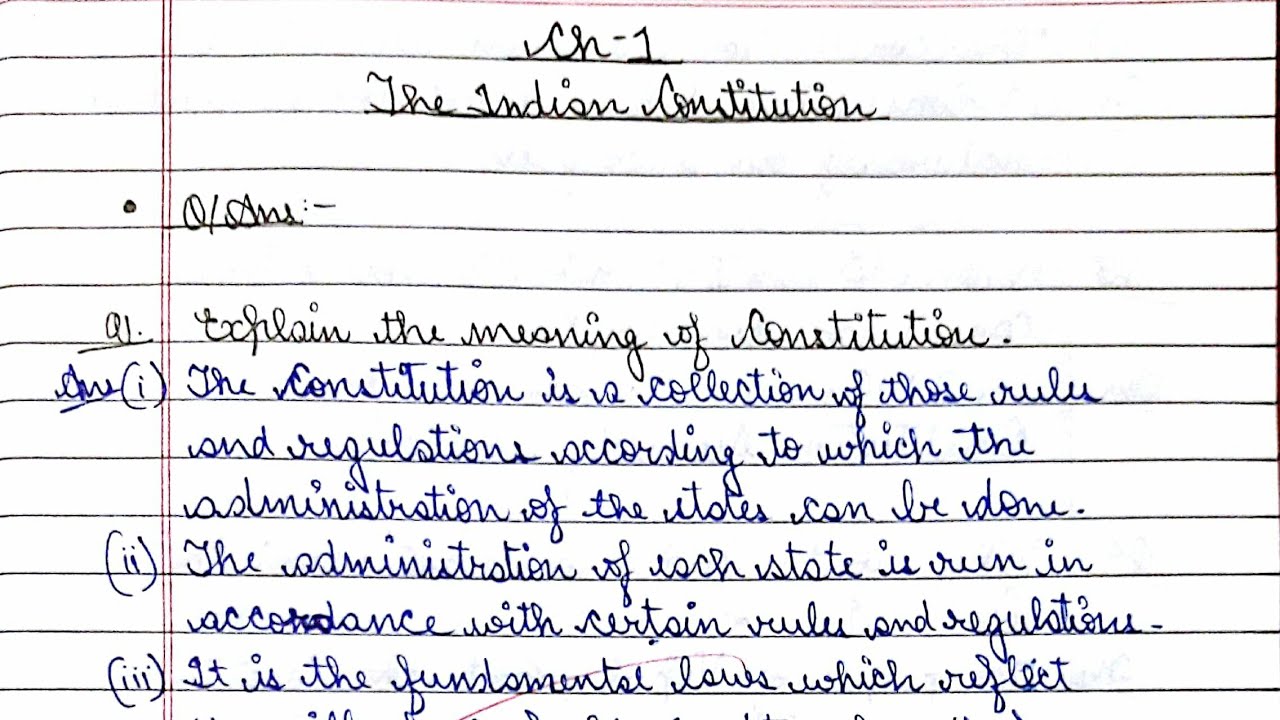 Ch-1
The Indian Constitution
• Q/Ans:-
Q1. Explain the meaning of Constitution.
Ans(i) The Constitution is a collection of those rules
and regulations according to which the
administration of the states can be done.
(ii) The administration of each state is run in
accordance with certain rules and regulations.
(iii) It is the fundamental laws which reflect